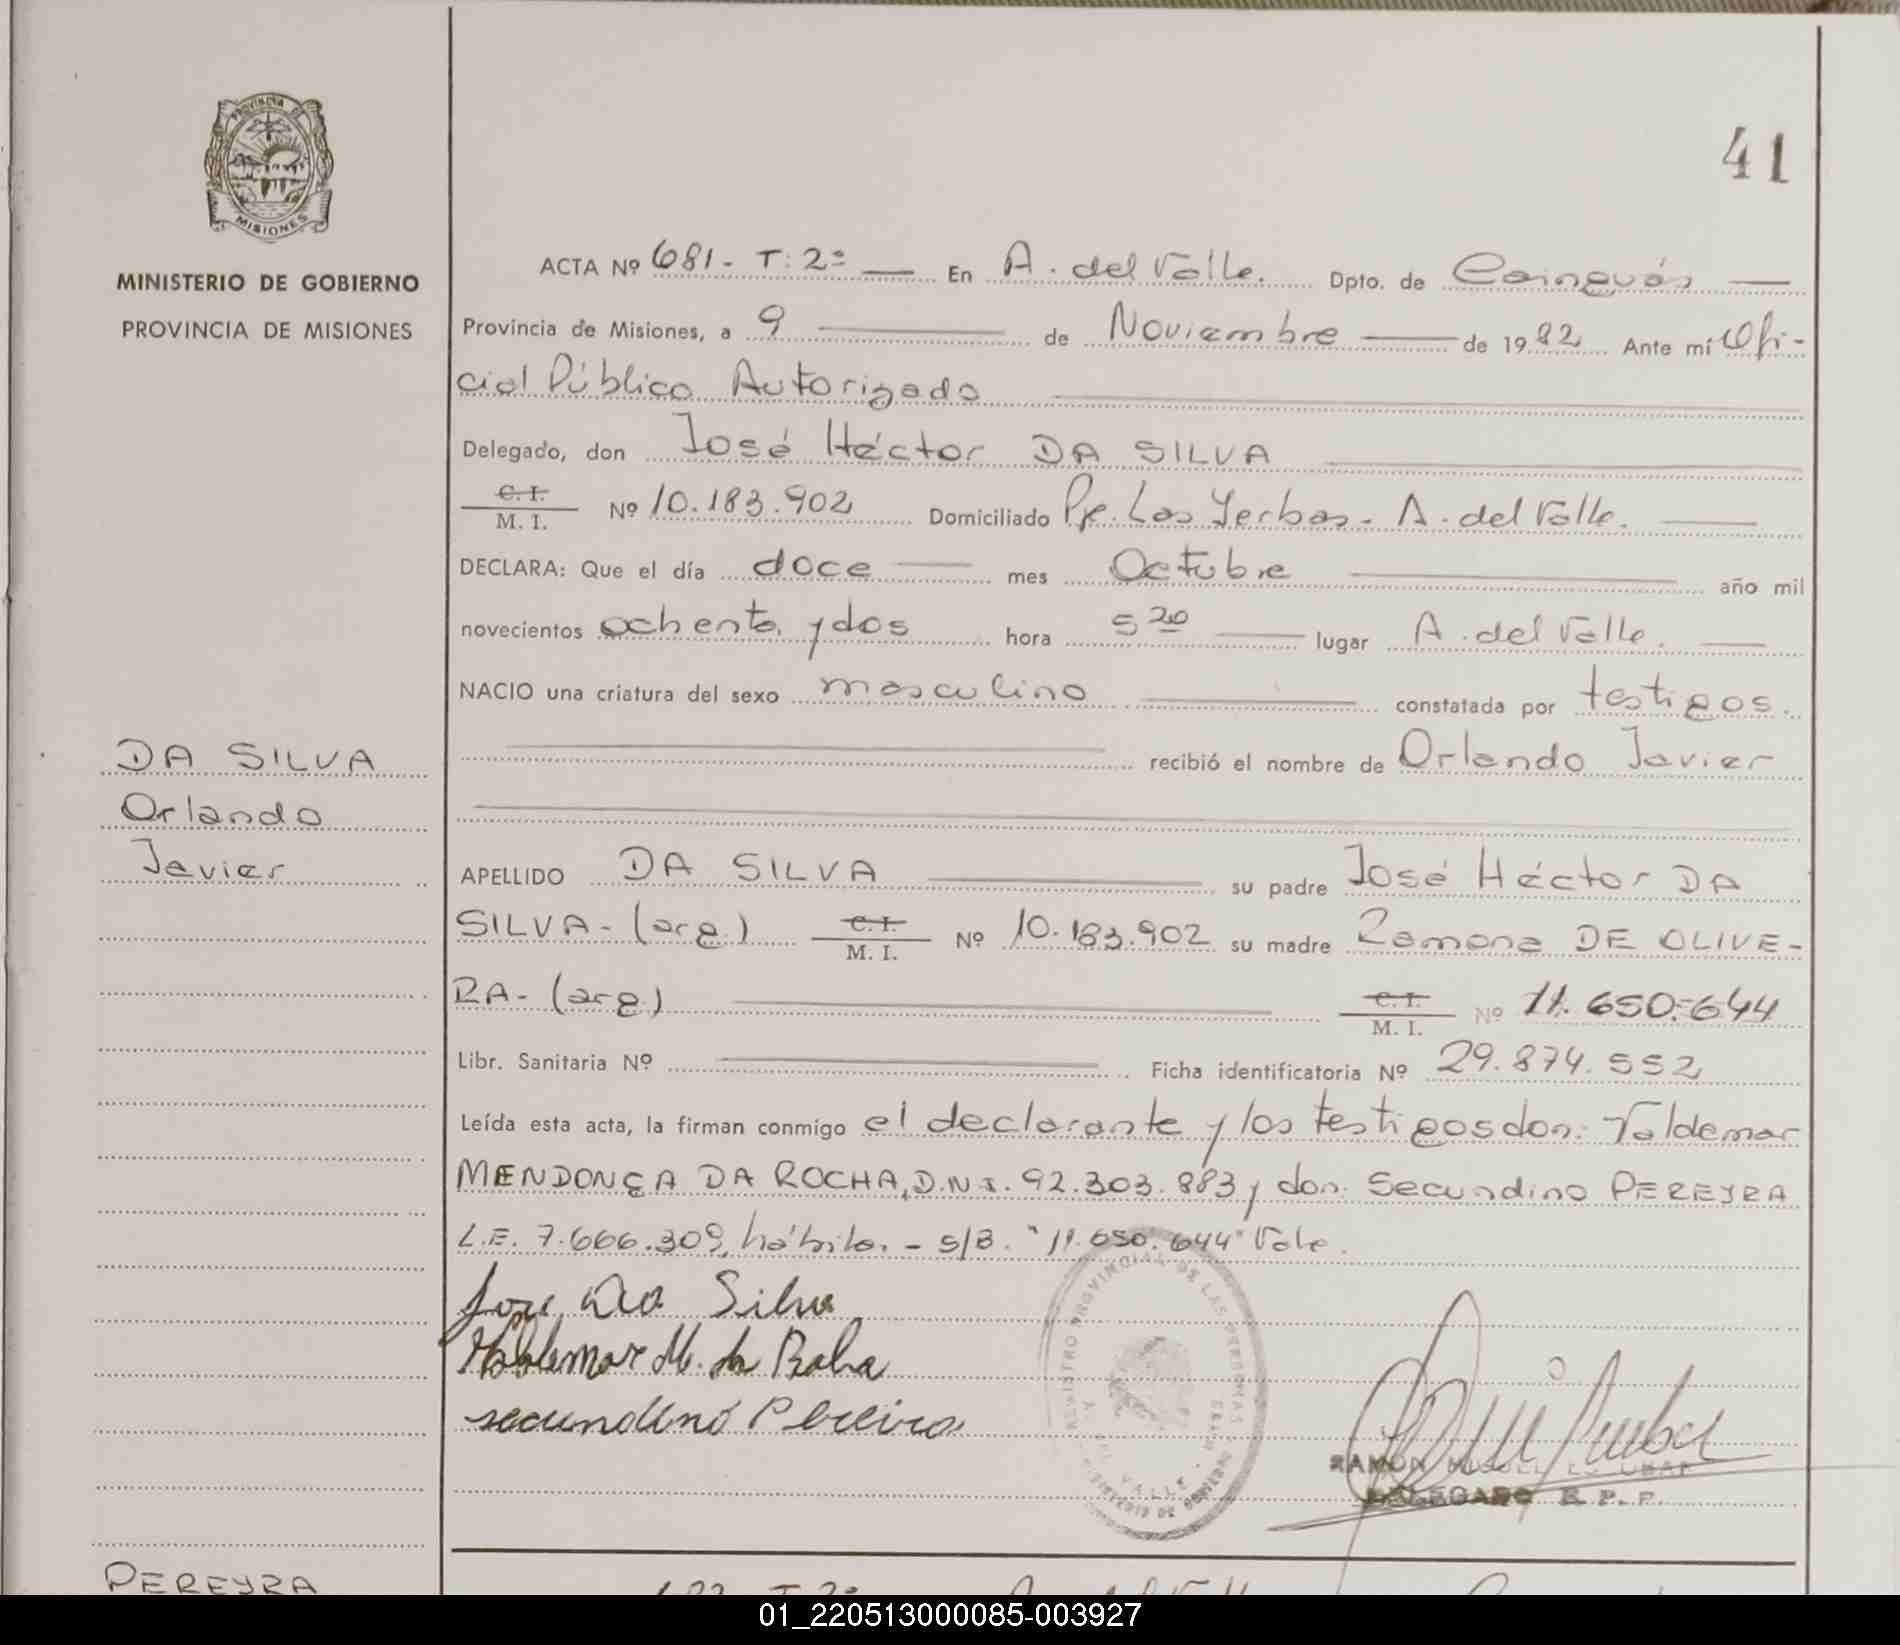 PROVINCIA DE
MISIONES
MINISTERIO DE GOBIERNO
PROVINCIA DE MISIONES
41
ACTA Nº 681- T: 2º — En A. del Valle. Dpto. de Cainguás —
Provincia de Misiones, a 9 — de Noviembre — de 1982 Ante mí Ofi-
cial Público Autorizado
Delegado, don José Héctor DA SILVA
C. I.
M. I. Nº 10.183.902 Domiciliado Pje. Las Yerbas - A. del Valle. —
DECLARA: Que el día doce — mes Octubre — año mil
novecientos ochenta y dos hora 5 20 — lugar A. del Valle. —
NACIO una criatura del sexo masculino — constatada por testigos.
— recibió el nombre de Orlando Javier
DA SILVA
Orlando
Javier
APELLIDO DA SILVA — su padre José Héctor DA
SILVA- (arg.) C. I. M. I. Nº 10.183.902 su madre Ramona DE OLIVE-
RA- (arg.) — C. I. M. I. Nº 11.650.644
Libr. Sanitaria Nº — Ficha identificatoria Nº 29.874.552
Leída esta acta, la firman conmigo el declarante y los testigos don: Valdemar
MENDONÇA DA ROCHA, D.N.I. 92.303.883 y don: Secundino PEREYRA
L.E. 7.666.309, hábiles. - s/B. "11.650.644" Vale.
Jose Da Silva
Valdemar M. da Roha
secundino Pereira
REGISTRO PROVINCIAL DE LAS PERSONAS
RAMON MIGUEL
DELEGADO R. P. P.
PEREYRA
01_220513000085-003927